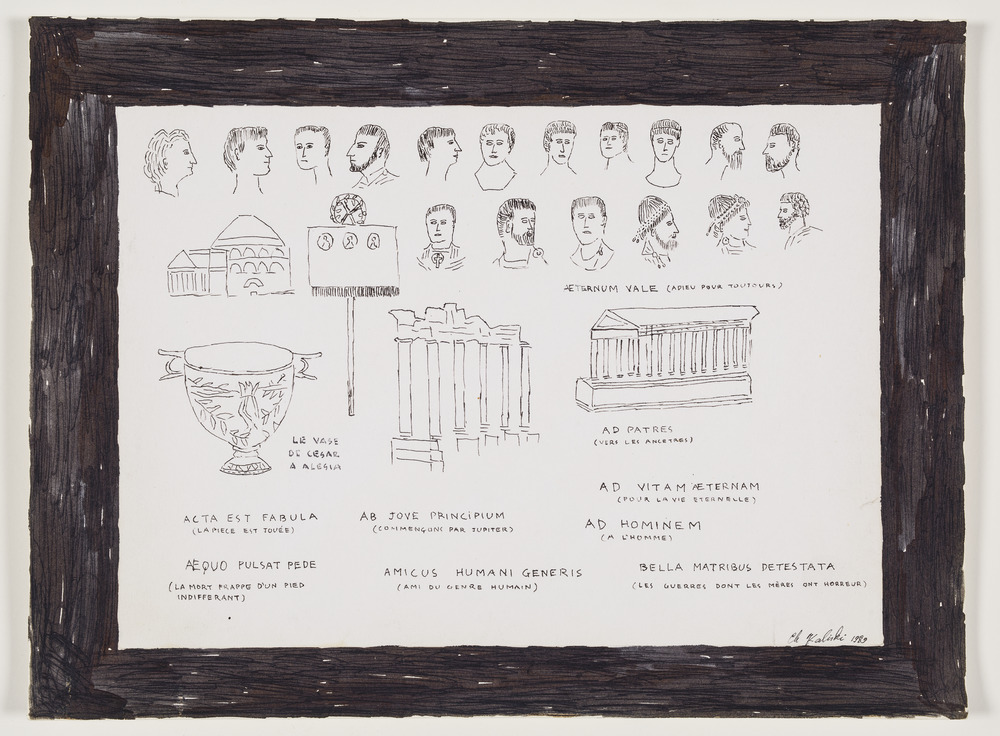 ÆTERNUM VALE (ADIEU POUR TOUTOURS)
LE VASE
DE CESAR
A ALESIA
AD PATRES
(VERS LES ANCETRES)
AD VITAM ÆTERNAM
(POUR LA VIE ETERNELLE)
ACTA EST FABULA
(LA PIECE EST JOUÉE)
AB JOVE PRINCIPIUM
(COMMENÇONS PAR JUPITER)
AD HOMINEM
(A L'HOMME)
ÆQUO PULSAT PEDE
(LA MORT FRAPPE D'UN PIED
INDIFFERANT)
AMICUS HUMANI GENERIS
(AMI DU GENRE HUMAIN)
BELLA MATRIBUS DETESTATA
(LES GUERRES DONT LES MÈRES ONT HORREUR)
Ch Kaliski 1989